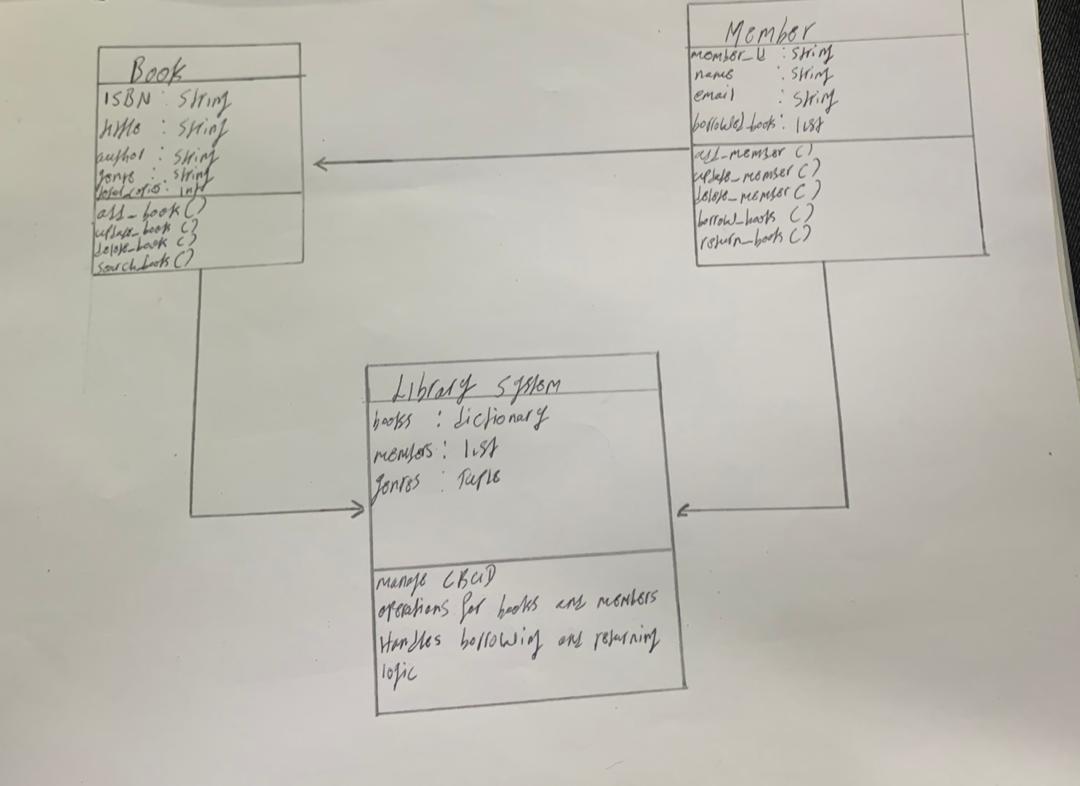 Book
ISBN : String
title : String
author : String
genre : String
total_copies : Int
add_book()
update_book ()
delete_book ()
search_books ()
Member
member_id : String
name : String
email : String
borrowed_books : list
add_member ()
update_member ()
delete_member ()
borrow_books ()
return_books ()
Library System
books : dictionary
members : list
genres : Tuple
manage
operations for books and members
Handles borrowing and returning
logic